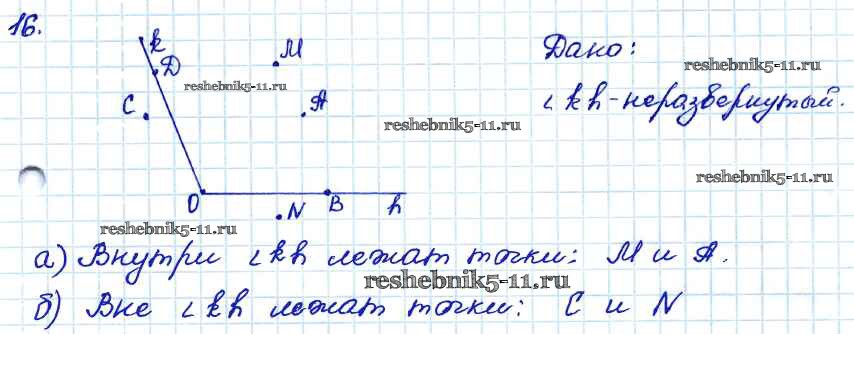 16.
k
D
M
reshebnik5-11.ru
C
A
Дано:
reshebnik5-11.ru
∠kh-неразвернутый.
reshebnik5-11.ru
reshebnik5-11.ru
O
B
h
N
reshebnik5-11.ru
а) Внутри ∠kh лежат точки: M и A.
reshebnik5-11.ru
б) Вне ∠kh лежат точки: C и N